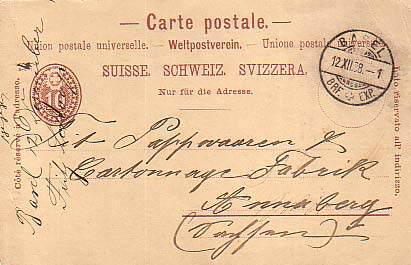 — Carte postale. —
Union postale universelle. — Weltpostverein. — Unione postale universale.
SUISSE. SCHWEIZ. SVIZZERA.
Nur für die Adresse.
Côté réservé à l'adresse.
Lato riservato all'indirizzo.
10
BASEL
12.XII.88.–1
BRF. EXP.
Tit Pappwaaren &
Cartonnage Fabrik
Annaberg
(Sachsen)
Basel